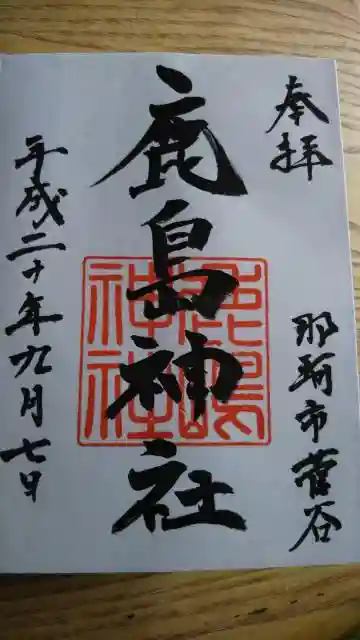 奉拝
那珂市菅谷
鹿島神社
鹿嶋神社
平成二十年九月七日